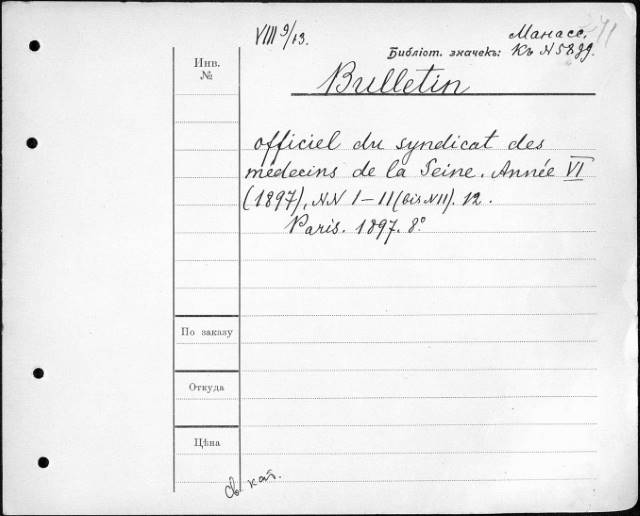 VIII 9/13.
Манасс.
Библіот. значекъ: Къ N 5899.
Инв.
№
Bulletin
officiel du syndicat des
médecins de la Seine. Année VI
(1897), NN 1-11 (bis N11). 12.
Paris. 1897. 8°
По заказу
Откуда
Цѣна
кат.